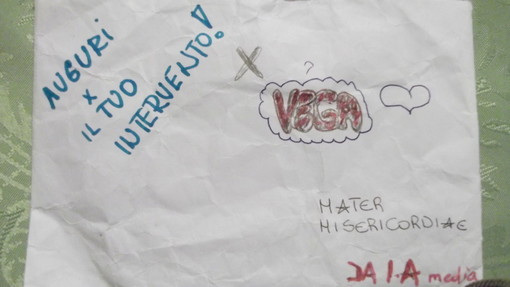 AUGURI
x
IL TUO
INTERVENTO!
X
?
VEGA
MATER
MISERICORDIAE
DA I.A media